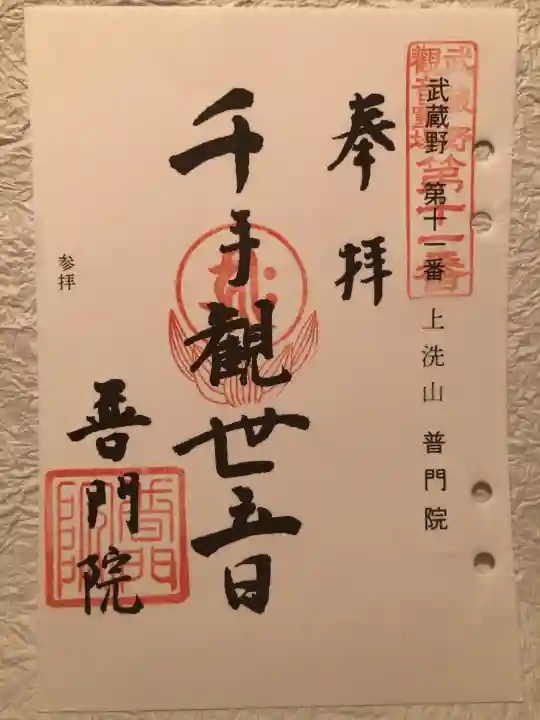 武蔵野
觀音霊場
第十一番
武蔵野 第十一番 上洗山 普門院
奉拝
千手觀世音
普門院
普門
院印
参拝